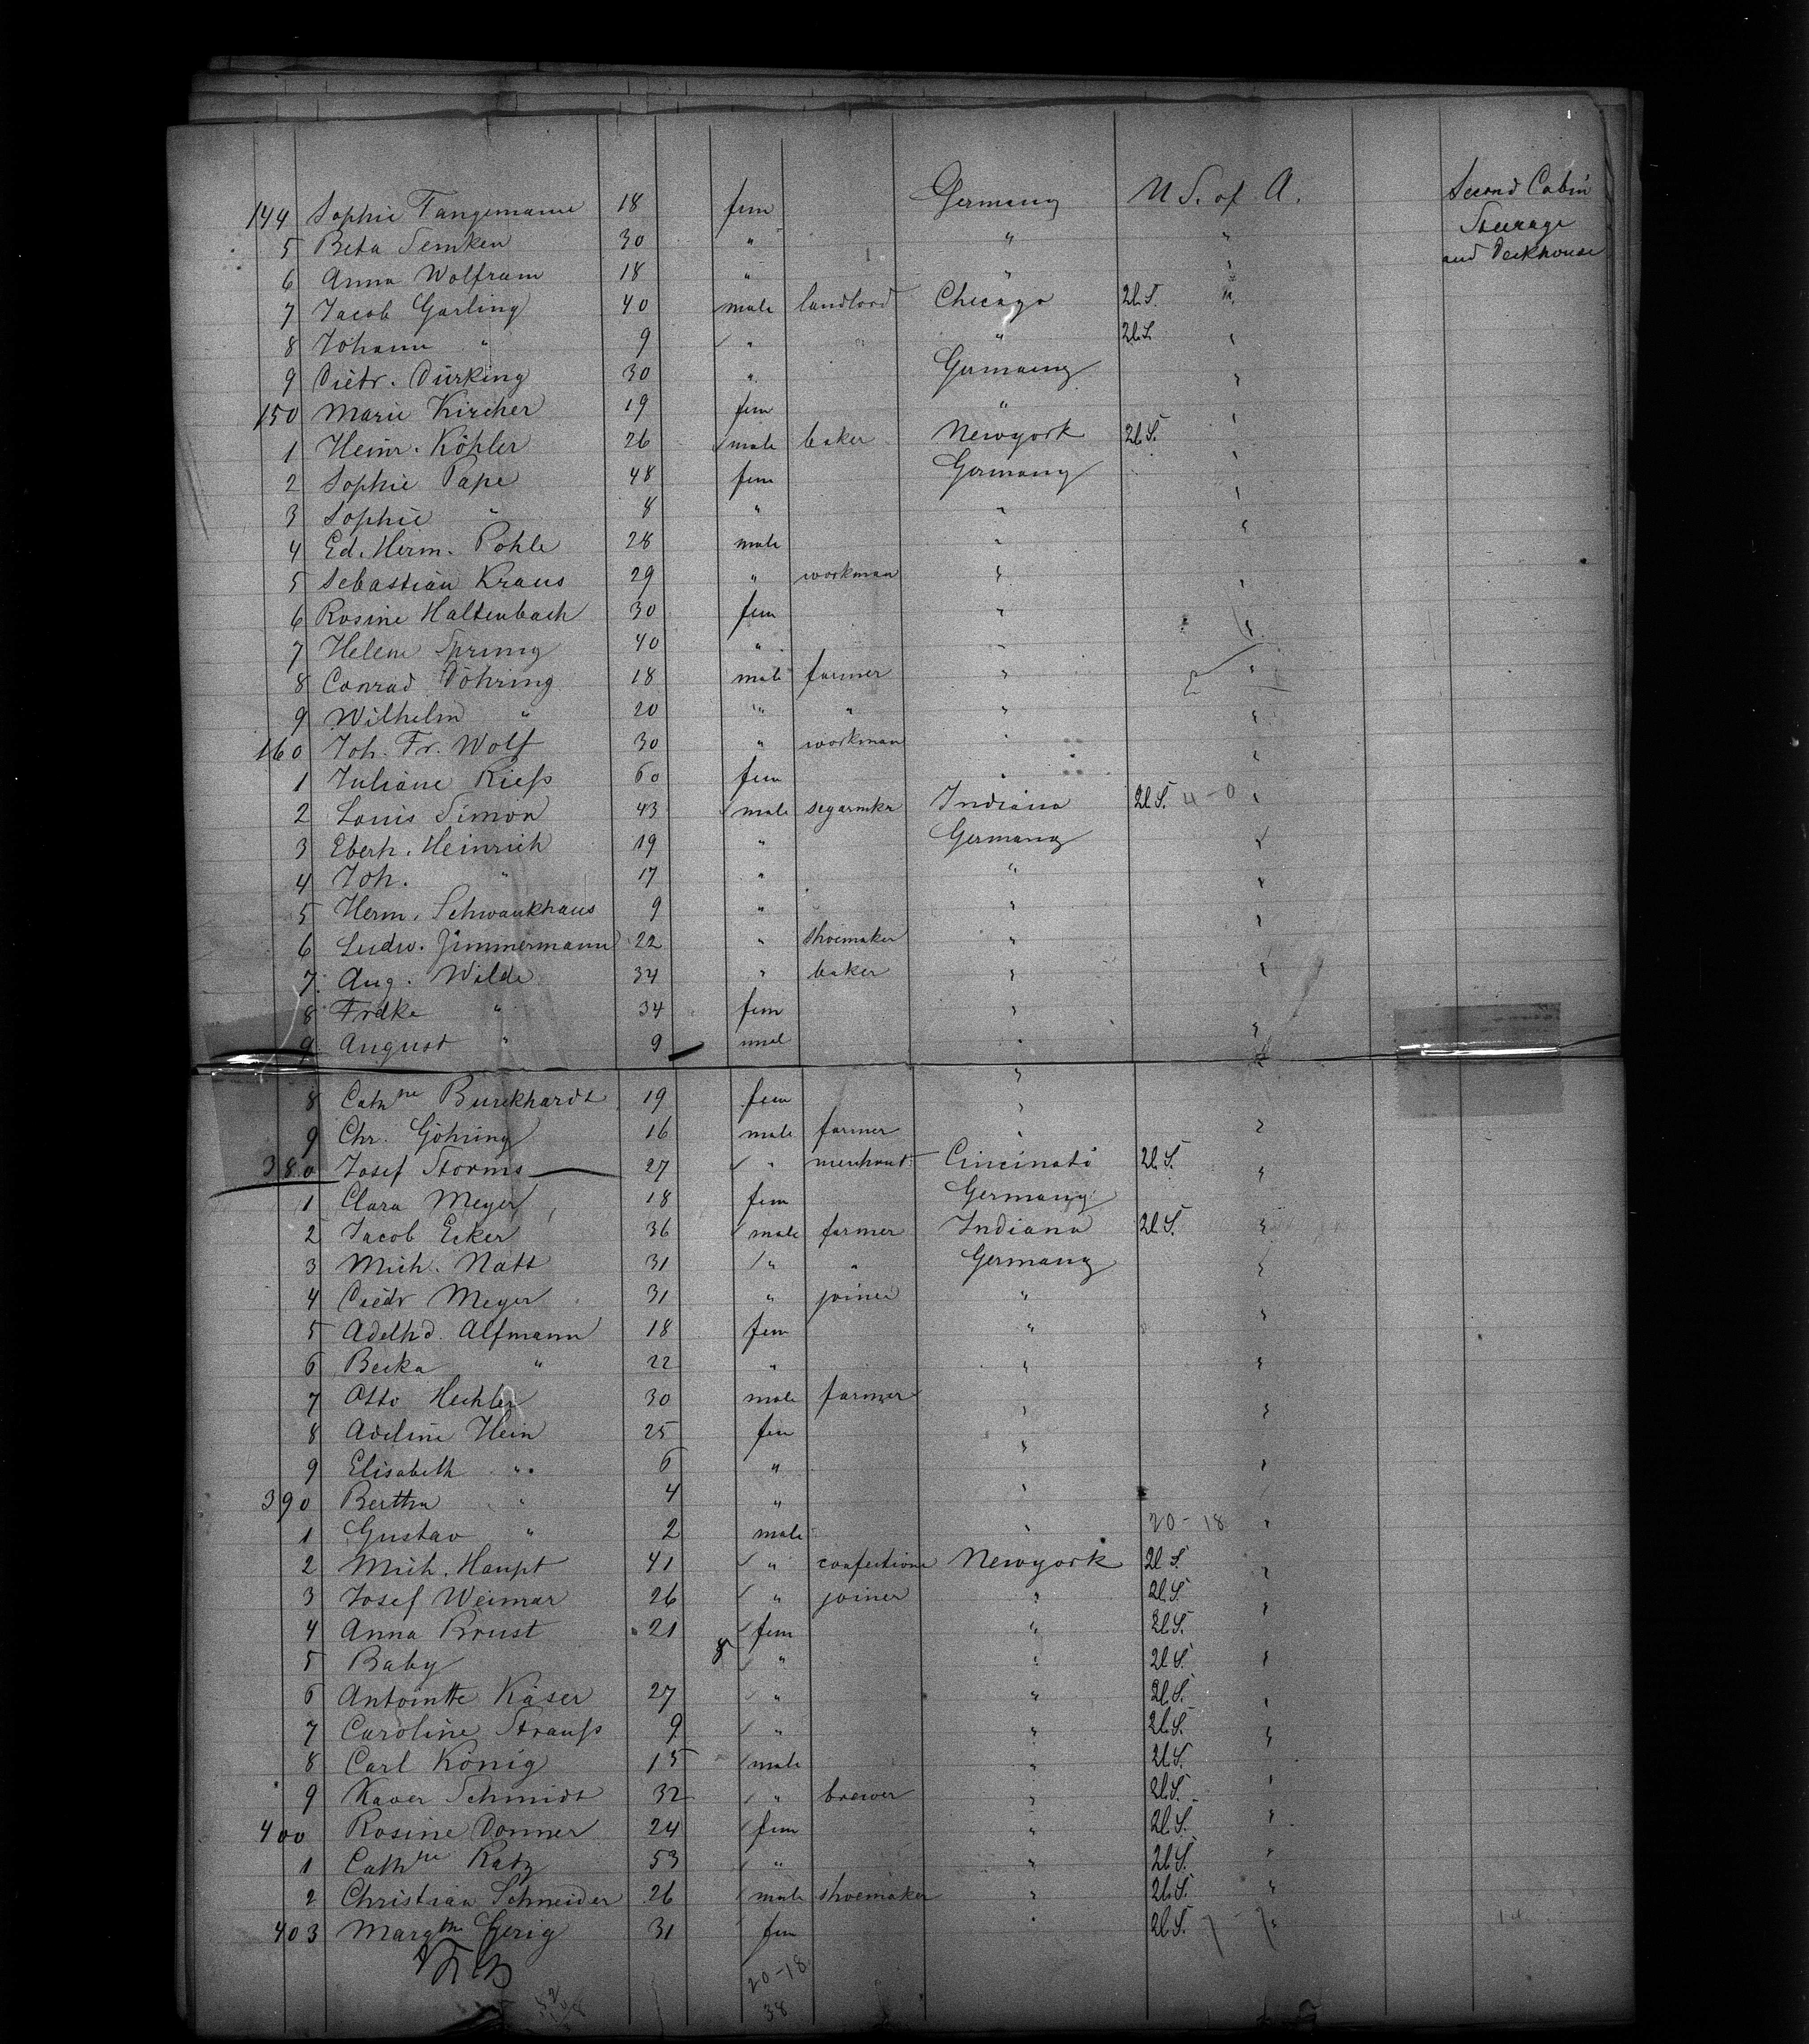 144 Sophie Tangemann 18 fem Germany U S. of A. Second Cabin
5 Beta Semken 30 " " " Steerage
6 Anna Wolfram 18 " " " and Deckhouse
7 Jacob Garling 40 male landlord Chicago U.S. "
8 Johann " 9 " " U.S. "
9 Diedr. Dürking 30 " Germany "
150 Marie Kircher 19 fem " "
1 Heinr. Köhler 26 male baker Newyork U.S. "
2 Sophie Pape 48 fem Germany "
3 Sophie " 8 " " "
4 Ed. Herm. Pohle 28 male " "
5 Sebastian Kraus 29 " workman " "
6 Rosine Haltenbach 30 fem " "
7 Helene Sprung 40 " " "
8 Conrad Döhring 18 male farmer " "
9 Wilhelm " 20 " " " "
160 Joh. Fr. Wolf 30 " workman " "
1 Juliane Rieß 60 fem " "
2 Louis Simon 43 male segarmkr Indiana U.S. 4-0 "
3 Eberh. Heinrich 19 " Germany "
4 Joh. " 17 " " "
5 Herm. Schwankhaus 9 " " "
6 Ludw. Zimmermann 22 " shoemaker " "
7 Aug. Wilde 34 " baker " "
8 Frdke " 34 fem " "
9 August " 9 male " "
8 Cathne Burckhardt 19 fem " "
9 Chr. Göhring 16 male farmer " "
380 Josef Storms 27 " merchant Cincinati U.S. "
1 Clara Meyer 18 fem Germany
2 Jacob Ecker 36 male farmer Indiana U.S. "
3 Mich. Natt 31 " " Germany "
4 Diedr Meyer 31 " joiner " "
5 Adelhd. Alfmann 18 fem " "
6 Becka " 22 " " "
7 Otto Hechler 30 male farmer " "
8 Adeline Hein 25 fem "
9 Elisabeth " 6 " " "
390 Bertha " 4 " "
1 Gustav " 2 male " 20-18 "
2 Mich. Haupt 41 " confectione Newyork U.S. "
3 Josef Weimar 26 " joiner " U.S. "
4 Anna Brust 21 fem " U.S.
5 Baby 8 " " U.S. "
6 Antointte Käser 27 " " U.S. "
7 Caroline Strauß 9 " " U.S. "
8 Carl König 15 male " U.S.
9 Xaver Schmidt 32 " brewer " U.S. "
400 Rosine Donner 24 fem " U.S. "
1 Cathne Katz 53 " " U.S. "
2 Christian Schneider 26 male shoemaker " U.S. "
403 Margthe Gerig 31 fem " U.S. "
20-18
38